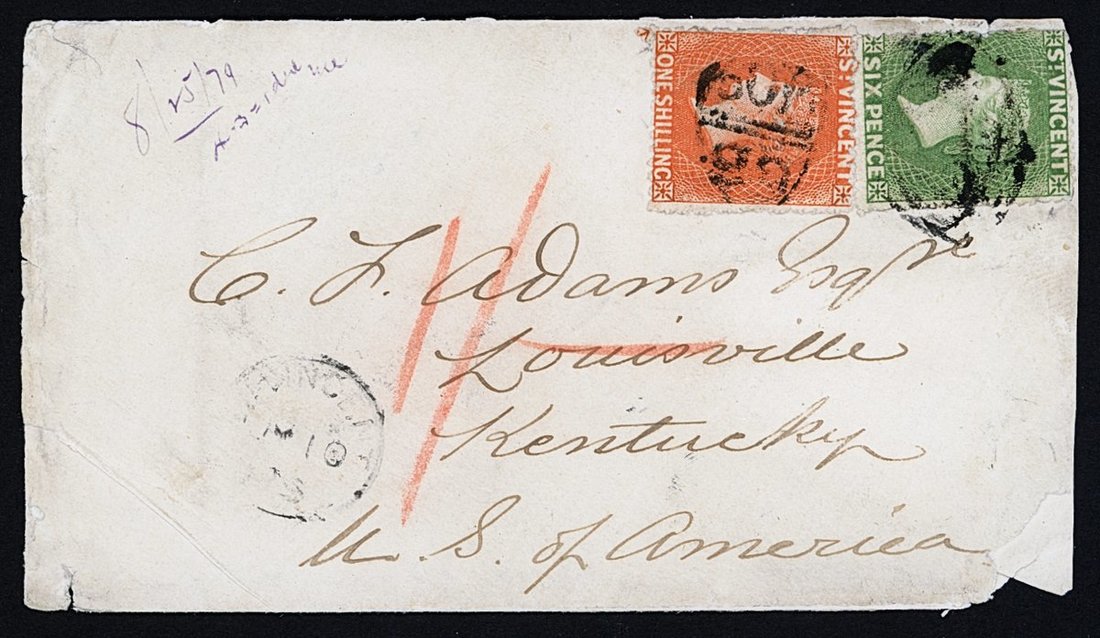 8/25/79
ST VINCENT
ONE SHILLING
ST VINCENT
SIX PENCE
1/-
C. F. Adams Esqre
Louisville
Kentucky
U. S. of America